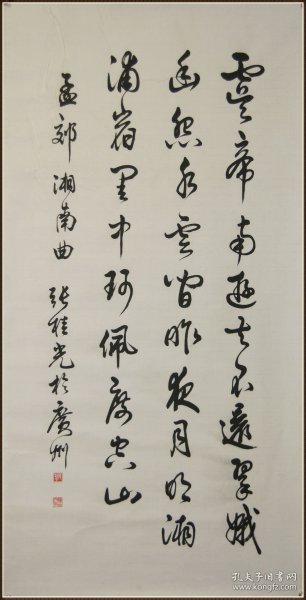 虞帝南遊去不還翠娥
幽怨水雲間昨夜月明湘
浦宿閨中珂佩度空山
孟郊湘南曲 張桂光於廣州
孔夫子旧书网